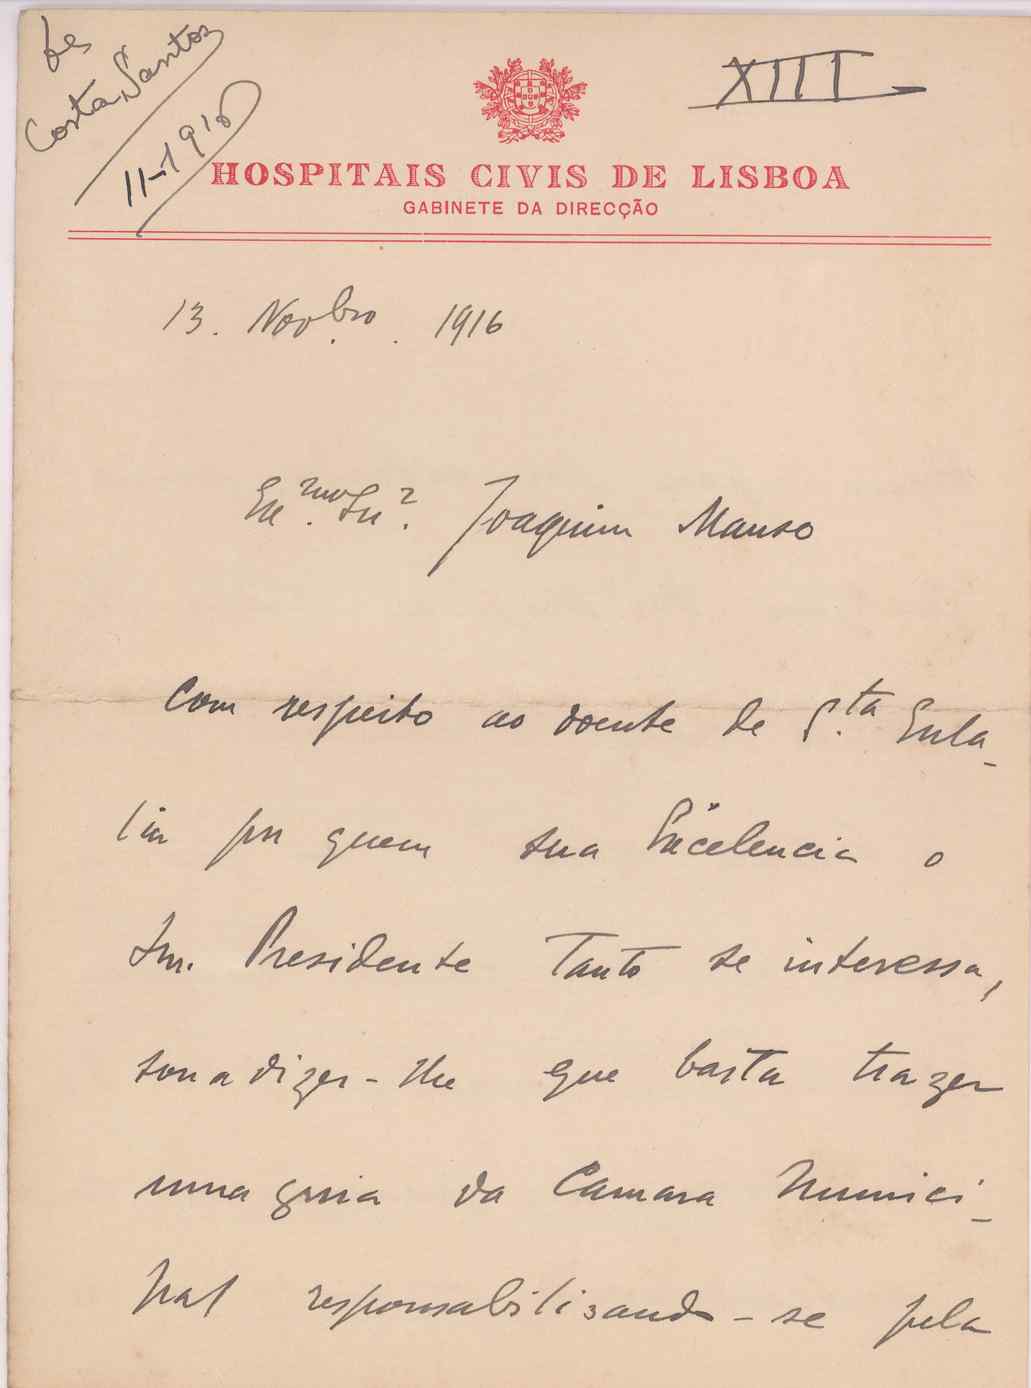 de
Costa Santos
11-1916
XIII
HOSPITAIS CIVIS DE LISBOA
GABINETE DA DIRECÇÃO
13. Novbro. 1916
Exmo. Snr. Joaquim Manso
Com respeito ao doente de S.ta Eula-
lia por quem sua Excelencia o
Snr. Presidente Tanto se interessa,
sou a dizer-lhe que basta trazer
uma guia da Camara Munici-
pal responsabilisando-se pela